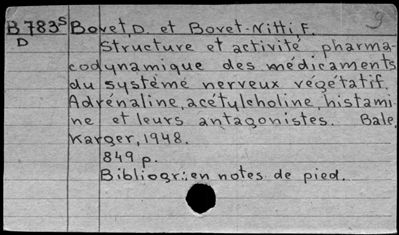 B 783s Bovet, D. et Bovet-Nitti, F. 9
D
Structure et activité pharma-
codynamique des médicaments
du système nerveux végétatif.
Adrénaline, acétylcholine, histami-
ne et leurs antagonistes. Bale,
Karger, 1948.
849 p.
Bibliogr.: en notes de pied.